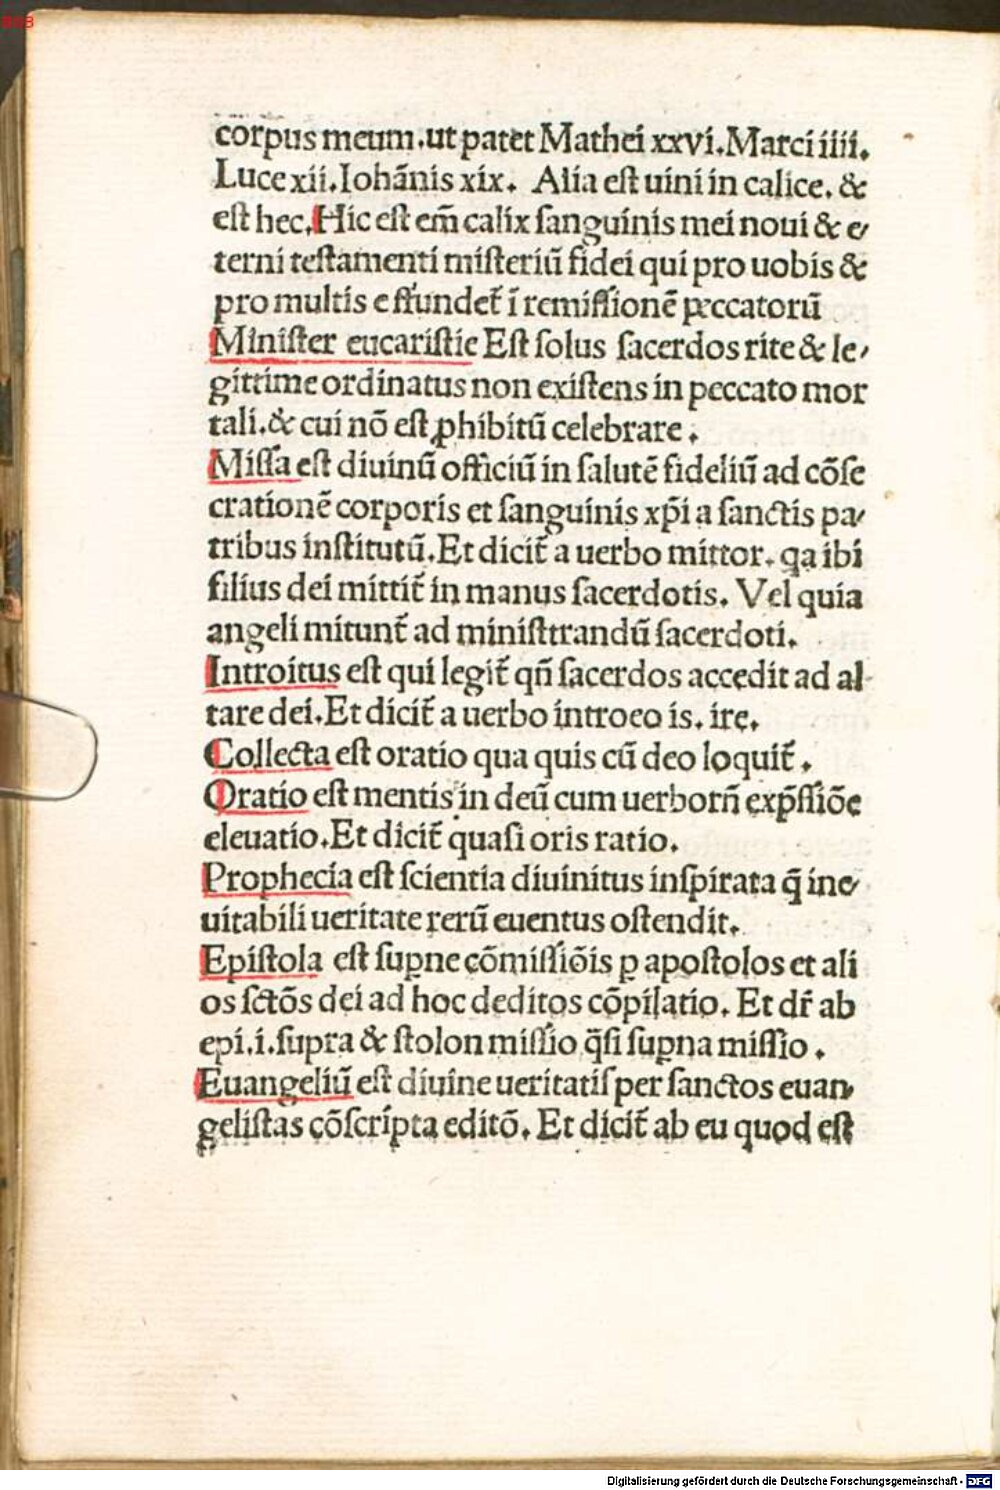 corpus meum.ut patet Mathei xxvi.Marci iiii.
Luce xii.Iohãnis xix. Alia eſt uini in calice. &
eſt hec.Hic eſt em̃ calix ſanguinis mei noui & e⸗
terni teſtamenti miſteriũ fidei qui pro uobis &
pro multis effundet̃ ĩ remiſſionẽ peccatorũ
Miniſter eucariſtie Eſt ſolus ſacerdos rite & le⸗
gittime ordinatus non exiſtens in peccato mor
tali.& cui nõ eſt ꝓhibitũ celebrare .
Miſſa eſt diuinũ officiũ in ſalutẽ fideliũ ad cõſe
crationẽ corporis et ſanguinis xp̃i a ſanctis pa⸗
tribus inſtitutũ.Et dicit̃ a uerbo mittor. qa ibi
filius dei mittit̃ in manus ſacerdotis. Vel quia
angeli mitunt̃ ad miniſttrandũ ſacerdoti.
Introitus eſt qui legit̃ qñ ſacerdos accedit ad al⸗
tare dei.Et dicit̃ a uerbo introeo is. ire.
Collecta eſt oratio qua quis cũ deo loquit̃ .
Oratio eſt mentis in deũ cum uerborũ exp̃ſſiõe
eleuatio.Et dicit̃ quaſi oris ratio.
Prophecia eſt ſcientia diuinitus inſpirata q̃ ine⸗
uitabili ueritate rerũ euentus oſtendit.
Epiſtola eſt ſuꝑne cõmiſſiõis ꝑ apoſtolos et ali
os ſctõs dei ad hoc deditos cõpilatio. Et dr̃ ab
epi.i.ſupra & ſtolon miſſio q̃ſi ſuꝑna miſſio .
Euangeliũ eſt diuine ueritatiſ per ſanctos euan⸗
geliſtas cõſcripta editõ. Et dicit̃ ab eu quod eſt
Digitalisierung gefördert durch die Deutsche Forschungsgemeinschaft - DFG